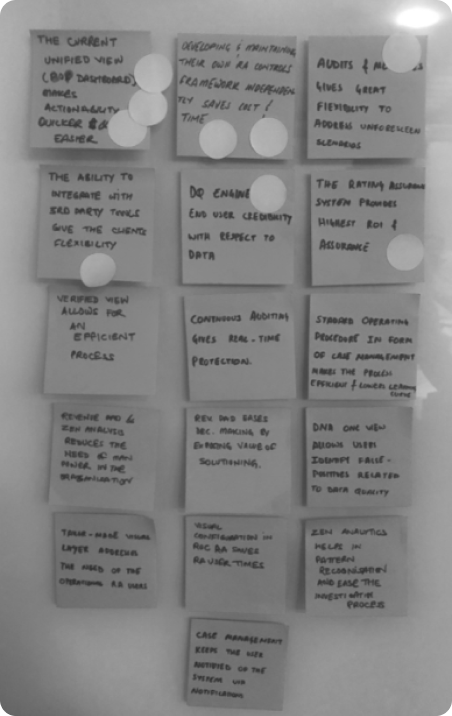 THE CURRENT
UNIFIED VIEW
DASHBOARD)
MAKES
ACTIONABILITY
QUICKER &
EASIER
DEVELOPING & MAINTAINING
THEIR OWN RA CONTROLS
FRAMEWORK INDEPENDEN
TLY SAVES COST &
TIME
AUDITS &
GIVES GREAT
FLEXIBILITY TO
ADDRESS UNFORESEEN
SCENARIOS
THE ABILITY TO
INTEGRATE WITH
3RD PARTY TOOLS
GIVE THE CLIENTS
FLEXIBILITY
DQ ENGINE
END USER CREDIBILITY
WITH RESPECT TO
DATA
THE RATING ASSURANCE
SYSTEM PROVIDES
HIGHEST ROI &
ASSURANCE
VERIFIED VIEW
ALLOWS FOR
AN
EFFICIENT
PROCESS
CONTINUOUS AUDITING
GIVES REAL-TIME
PROTECTION.
STANDARD OPERATING
PROCEDURE IN FORM
OF CASE MANAGEMENT
MAKES THE PROCESS
EFFICIENT & LOWERS LEARNING
CURVE
ZEN ANALYSIS
REDUCES THE
NEED OF MAN
POWER IN THE
ORGANISATION
EASES
DEC. MAKING BY
VALUE OF
SOLUTIONING.
DNA ONE VIEW
ALLOWS USERS
IDENTIFY FALSE-
POSITIVES RELATED
TO DATA QUALITY
TAILOR-MADE VISUAL
LAYER ADDRESSES
THE NEED OF THE
OPERATIONAL RA USERS
VISUAL
CONFIGURATION IN
ROC RA SAVES
RA USER TIMES
ZEN ANALYTICS
HELPS IN
PATTERN
RECOGNISATION
AND EASE THE
INVESTIGATION
PROCESS
CASE MANAGEMENT
KEEPS THE USER
NOTIFIED OF THE
SYSTEM VIA
NOTIFICATIONS